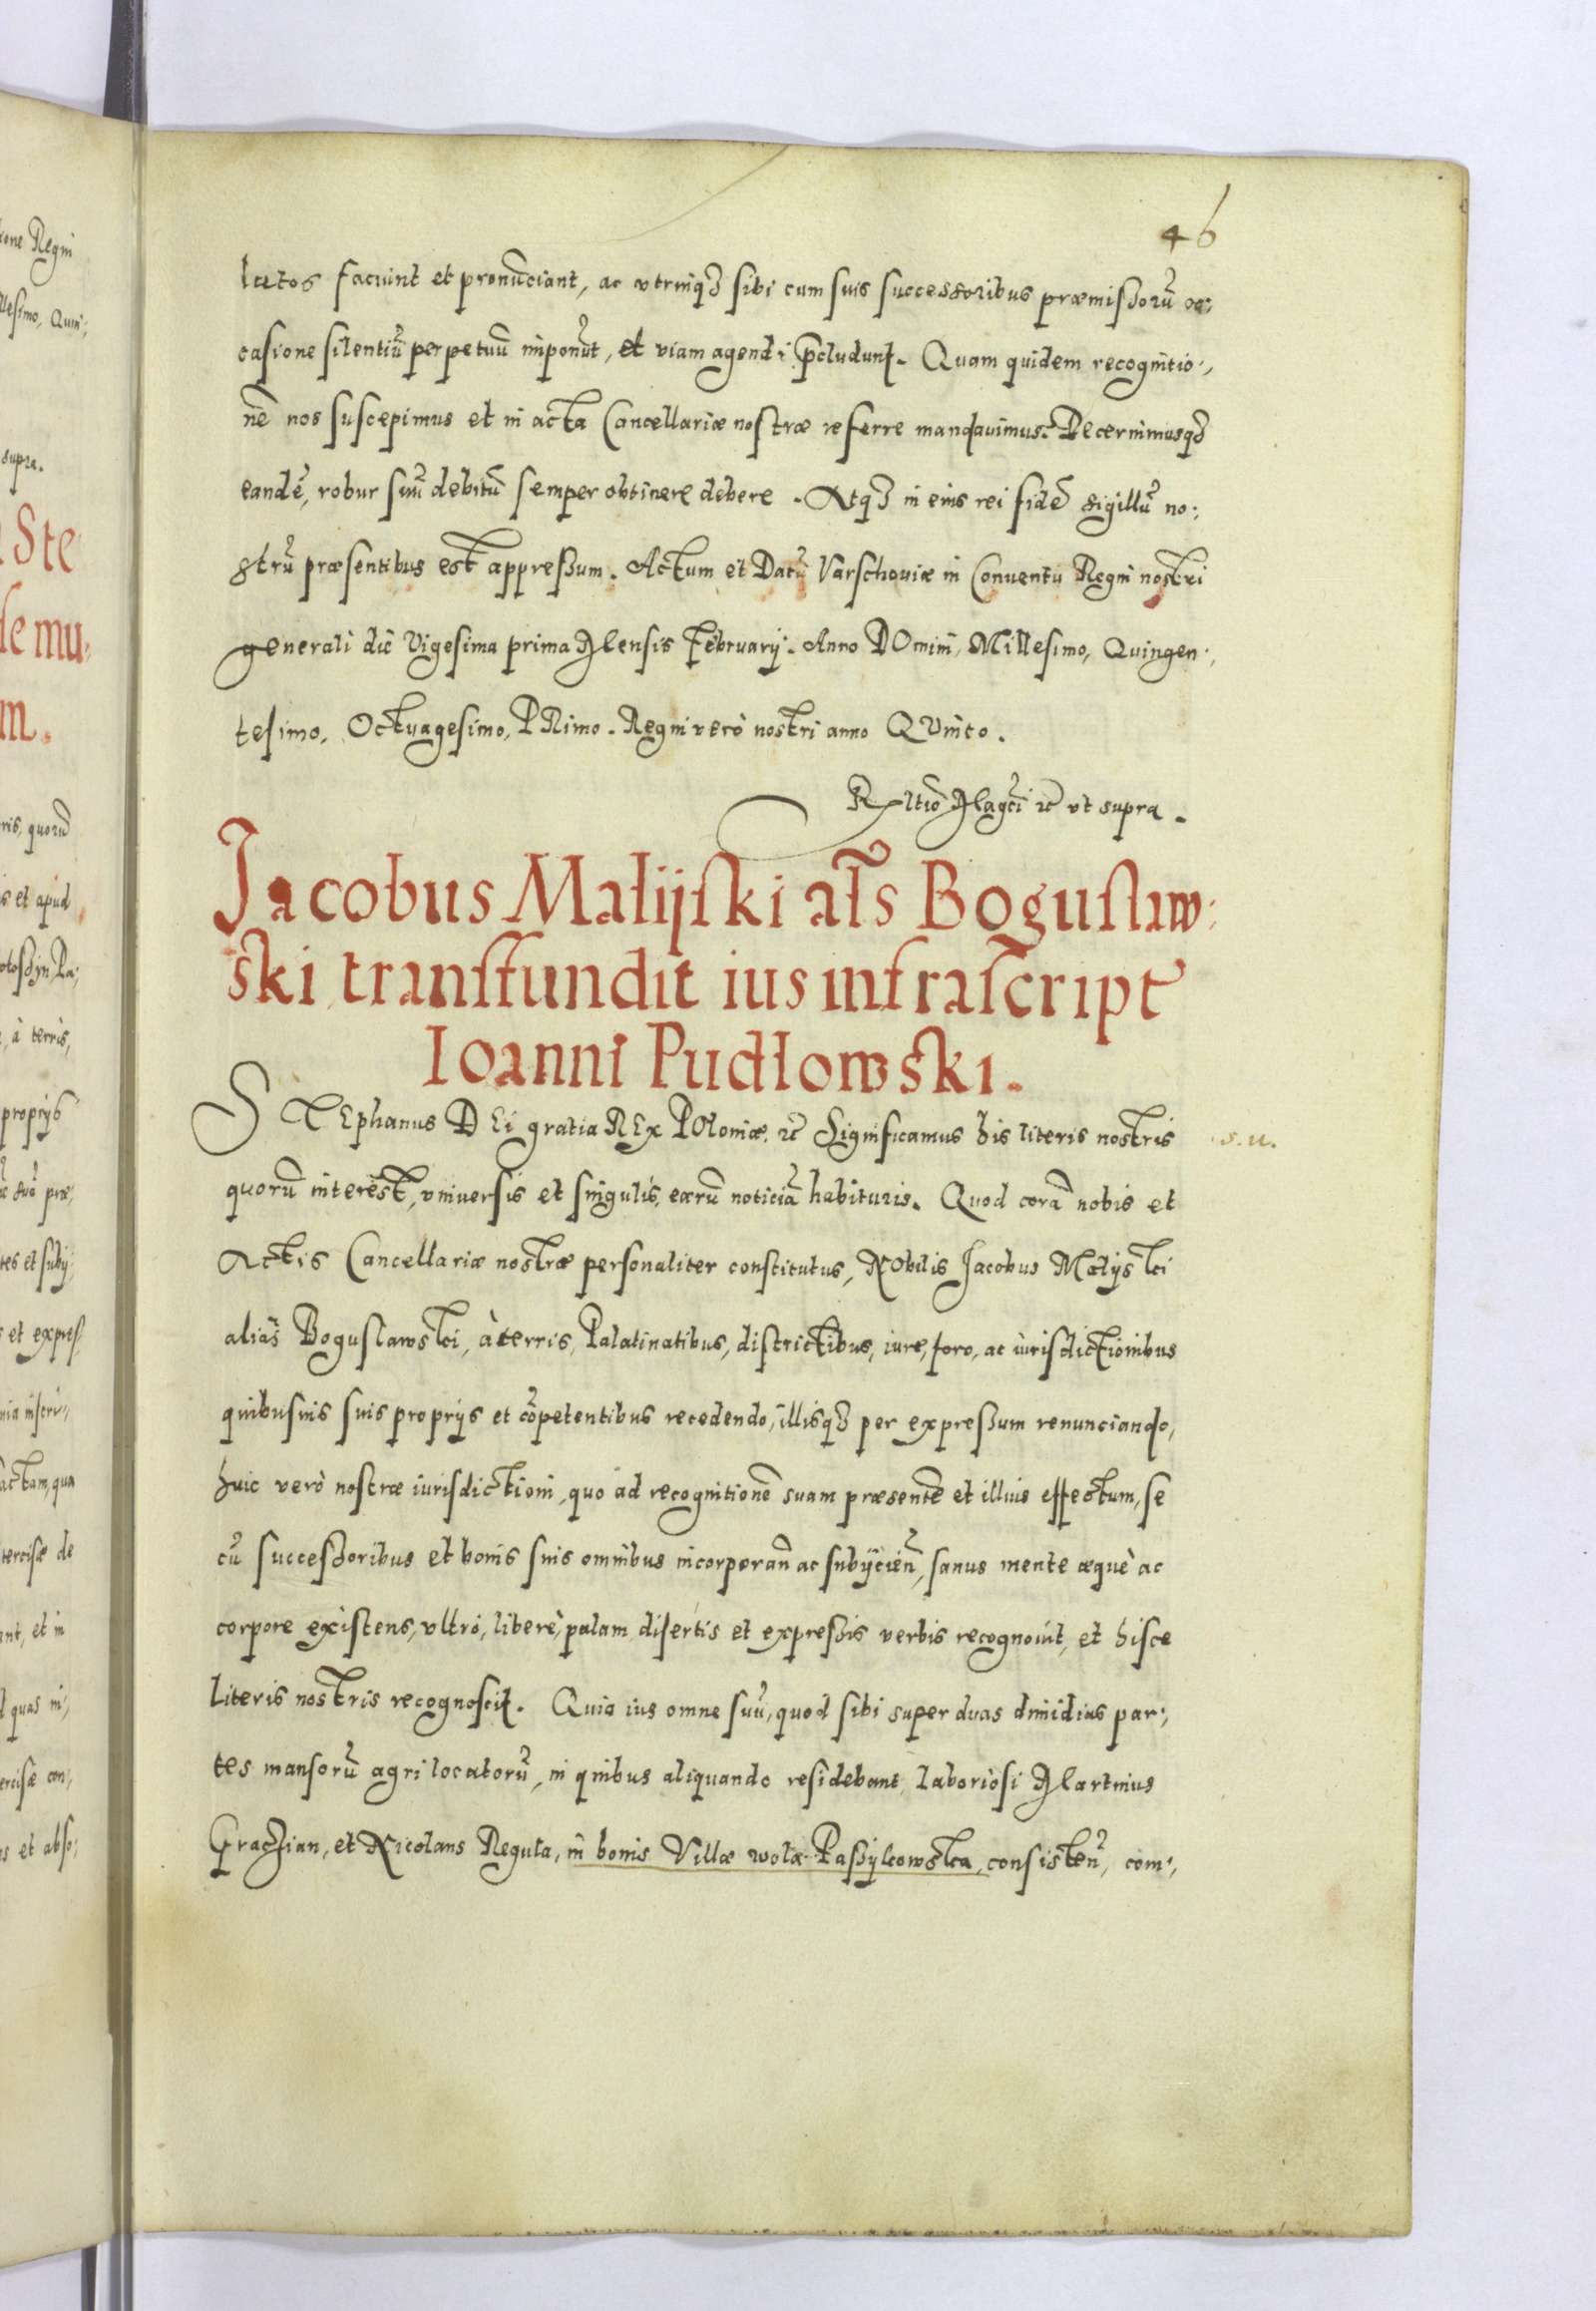 46
lutos faciunt et pronu̅ciant, ac vtrinq₃ sibi cum suis successoribus præmissoru̅ oc:,
casione silentiu̅ perpetuu̅ imponu̅t, et viam agendi p̅cludunt. Quam quidem recognitio:,
ne̅ nos suscepimus et in acta Cancellariæ nostræ referre mandauimus. Decernimusq₃
eande̅, robur suu̅ debitu̅ semper obtinere debere. Atq₃ in eius rei fide̅ sigillu̅ no:,
stru̅ præsentibus est appressum. Actum et Datu̅ Varschouiæ in Conuentu Regni nostri
generali die Vigesima prima Mensis Februarij. Anno DOmini, Millesimo, Quingen:,
tesimo, Octuagesimo, PRimo. Regni verò nostri anno QVinto.
Rltio̅ Magci̅ &c̅ vt supra.
Jacobus Malijski al̅s Boguslaw:
ski transfundit ius infrascript
Ioanni Pudłowski.
STEphanus DEi gratia REx POloniæ, &c̅ Significamus his literis nostris
s. u.
quoru̅ interest, vniversis et singulis, earu̅ noticia̅ habituris. Quod cora̅ nobis et
Actis Cancellariæ nostræ personaliter constitutus, NObilis Jacobus Malijski
aliàs Boguslawski, à terris, Palatinatibus, districtibus, iure, foro, ac iurisdictionibus
quibusuis suis proprijs et co̅petentibus recedendo, illisq₃ per expressum renunciando,
huic verò nostræ iurisdictioni, quo ad recognitione̅ suam præsente̅ et illius effectum, se
cu̅ successoribus et bonis suis omnibus incorporan̅ ac subijcien̅, sanus mente æquè ac
corpore existens, vltrò, liberè, palam, disertis et expressis verbis recognouit, et hisce
literis nostris recognoscit. Quia ius omne suu̅, quod sibi super duas dimidias par:,
tes mansoru̅ agri locatoru̅, in quibus aliquando residebant, laboriosi Martinus
Graczian, et Nicolaus Regula, in bonis Villæ wola Passijkowska, consisten̅, com:,